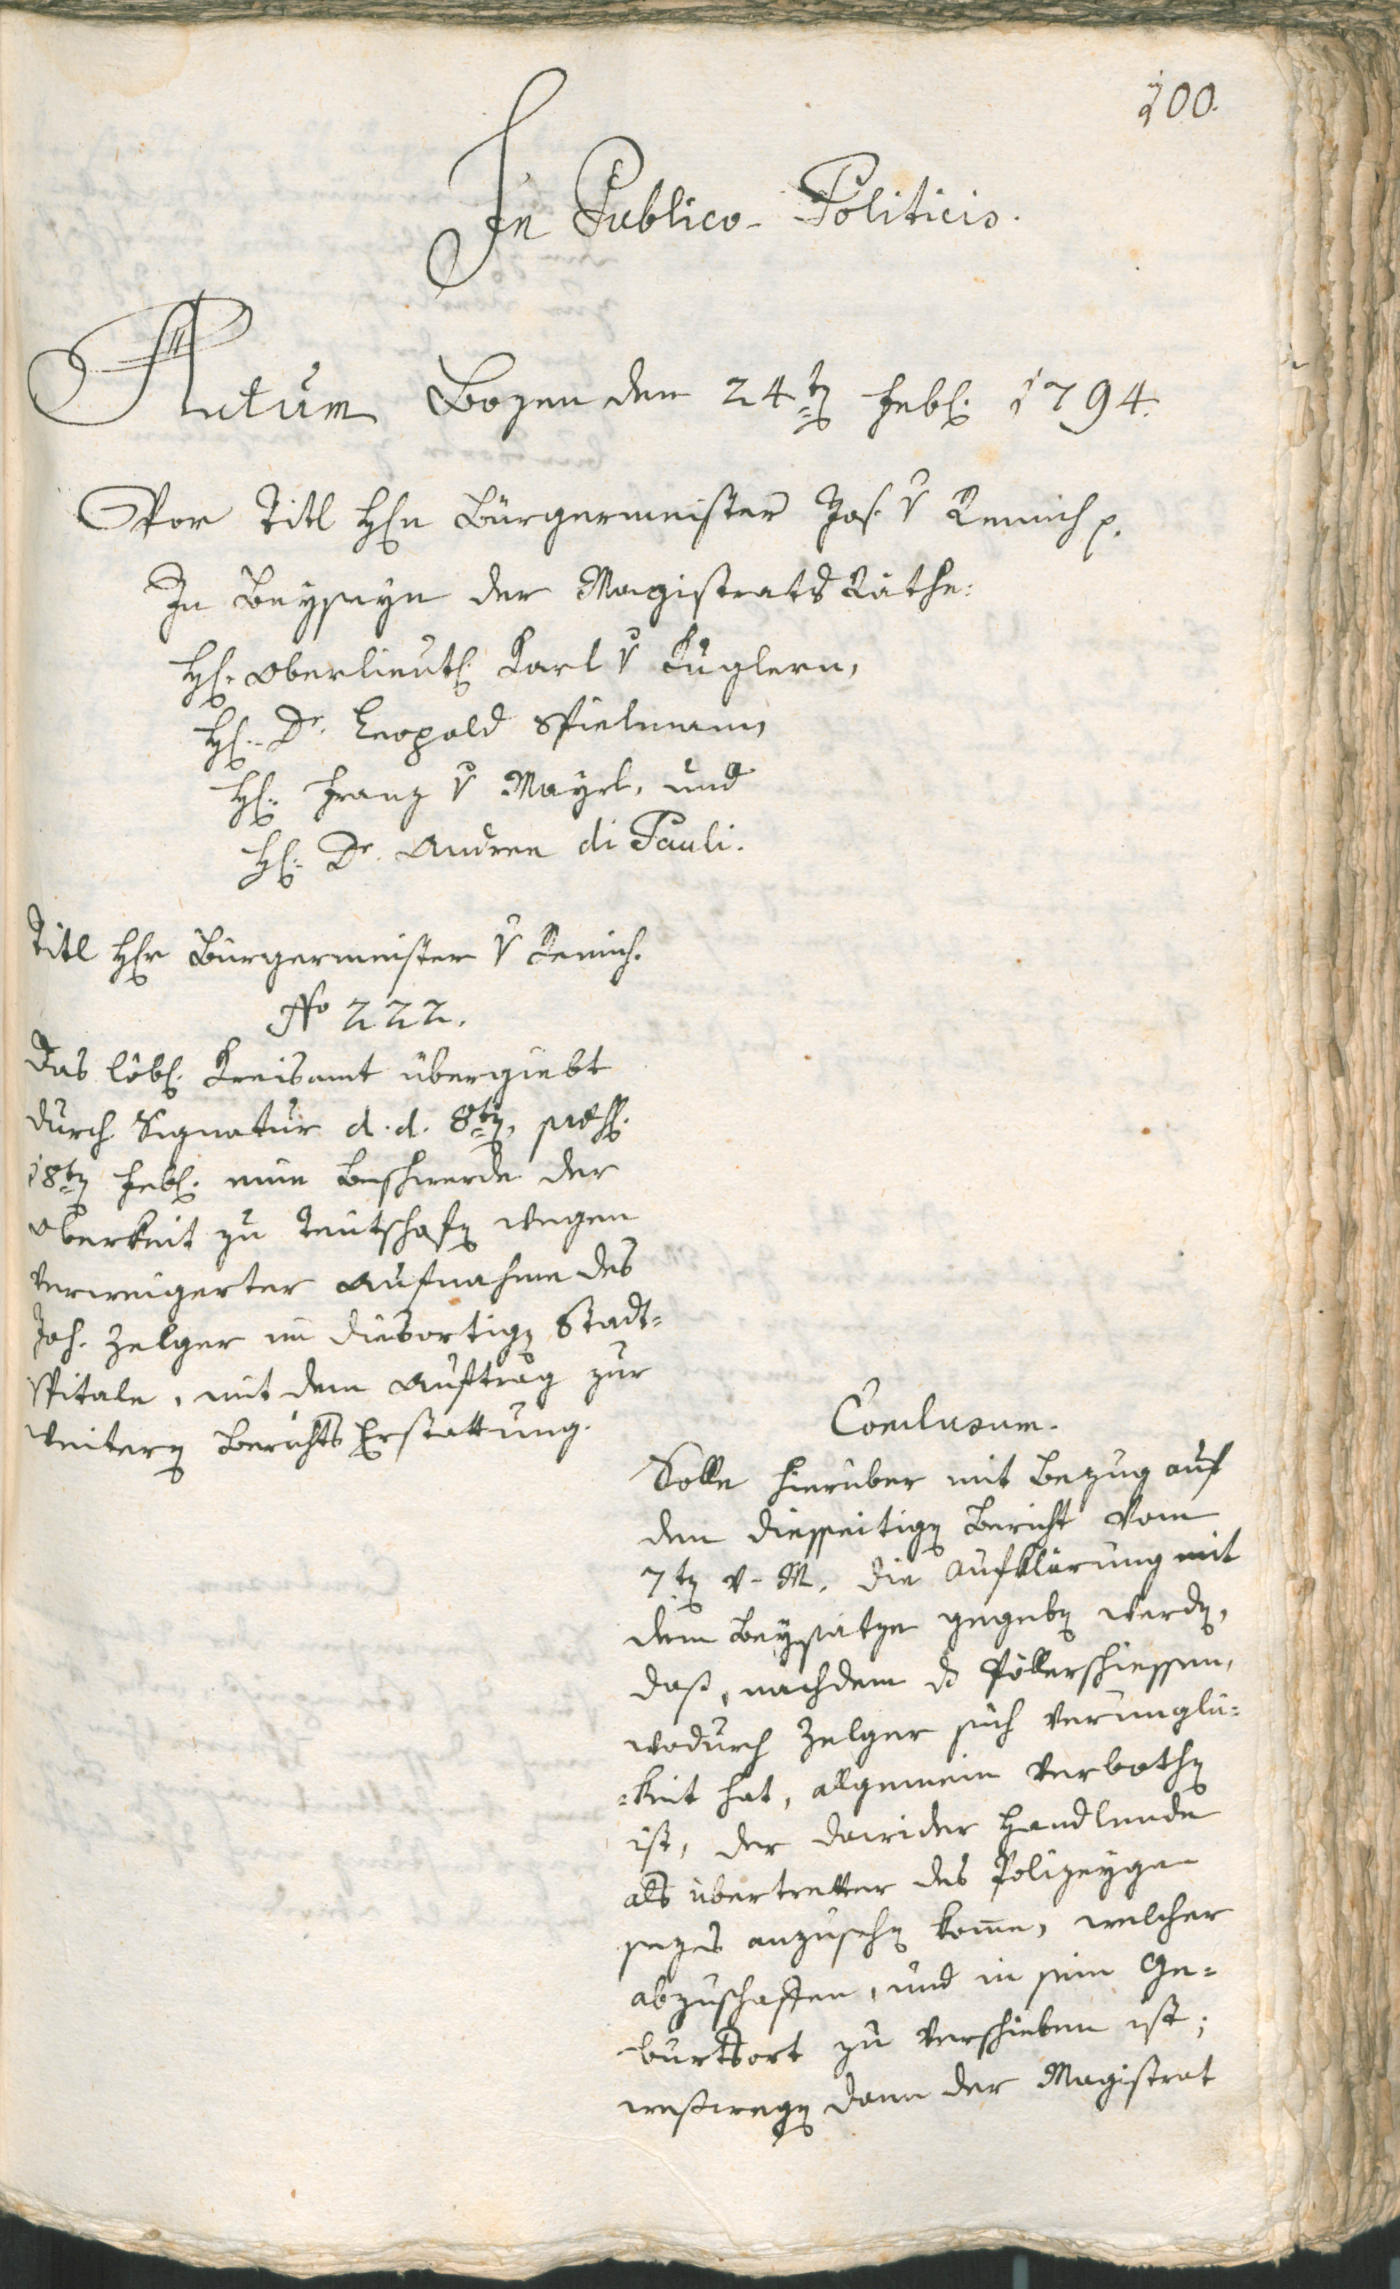 100.
In Publico-Politicis.
Actum Bozen den 24ten Febr. 1794.
Vor Titl Hrn Bürgermeister Jos. v Remich p.
In Beyseyn der Magistrats Räthe:
Hr. Oberlieut. Karl v Kuglern,
Hr. Dr. Leopold Spielmann,
Hr. Franz v Mayrl, und
Hr. Dr. Andree di Pauli.
Titl Hr Bürgermeister v Remich.
No 222.
Das löbl. Kreisamt übergiebt
durch Signatur d. d. 8ten, præs.
18ten Febr. eine Beschwerde der
Oberkeit zu Deutschofen wegen
verweigerter Aufnahme des
Joh. Zelger im diesortigen Stadt=
Spitale, mit dem Auftrag zur
weitern Berichts Erstattung.
Conclusum.
Solle hierüber mit Bezug auf
den diesseitigen Bericht vom
7ten v. M. die Aufklärung mit
dem Beysatze gegeben werden,
daß, nachdem das Pöllerschiessen,
wodurch Zelger sich verunglü=
=ket hat, allgemein verbothen
ist, der dawider Handlende
als übertretter des Polizeyge
sezes anzusehen komme, welcher
abzuschaffen, und in sein Ge=
burtsort zu verschieben ist;
weßwegen dann der Magistrat